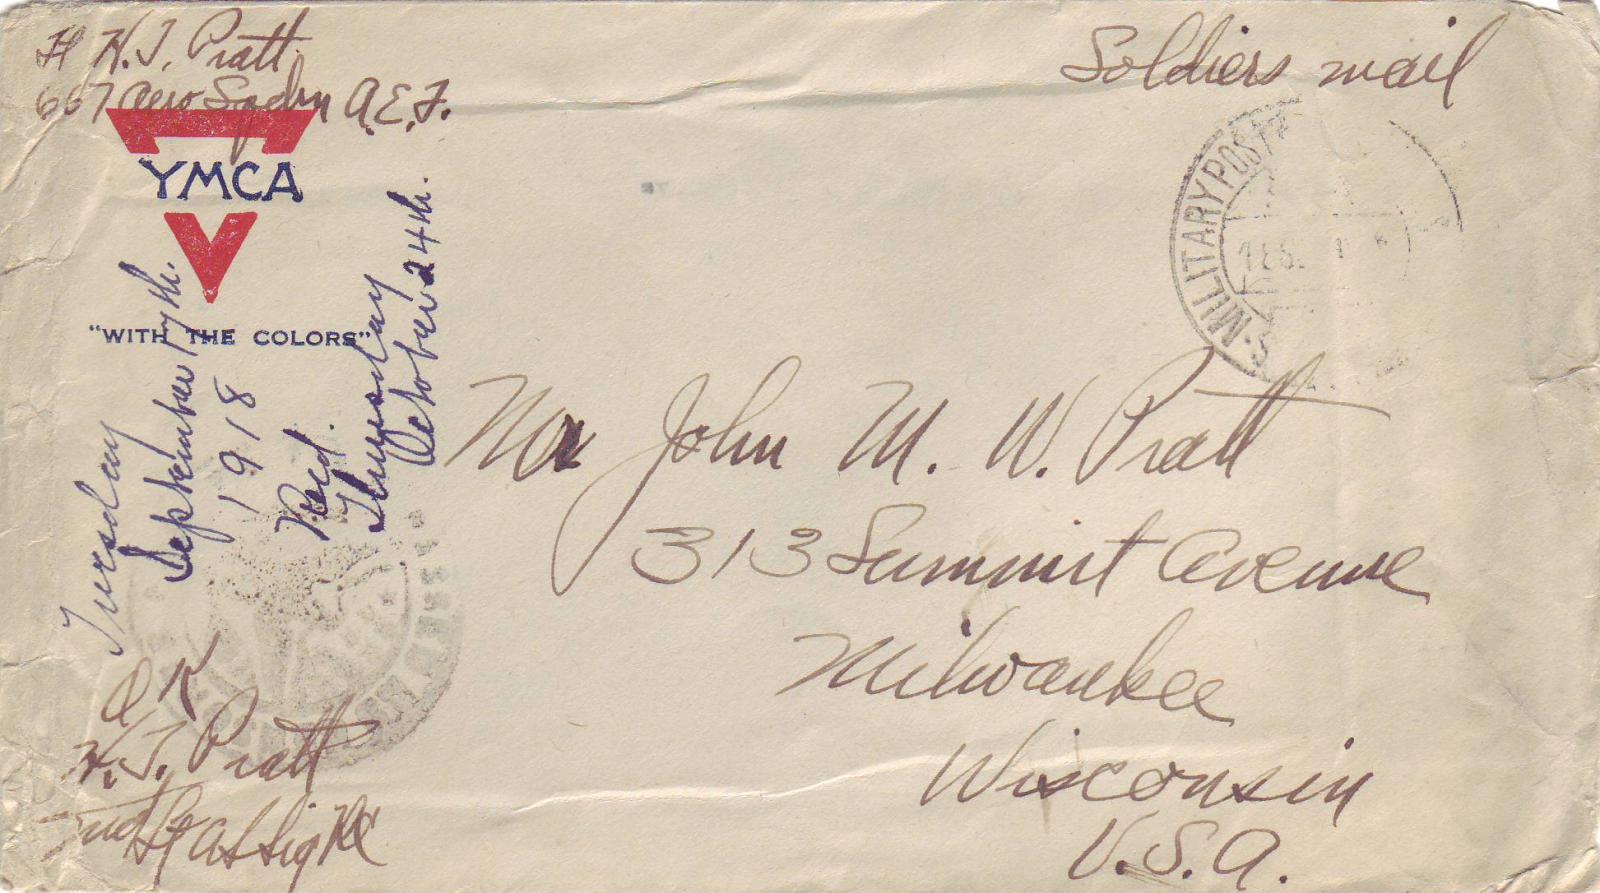 Lt H. J. Pratt
667 Aero Sqdrn A.E.F.
Soldiers mail
YMCA
"WITH THE COLORS"
MILITARY POST
Tuesday
September 17th.
1918
Recd.
Thursday
October 24th.
Mr John M. W. Pratt
313 Summit Avenue
Milwaukee
Wisconsin
U.S.A.
OK
H. J. Pratt
2nd Lt A S Sig RC